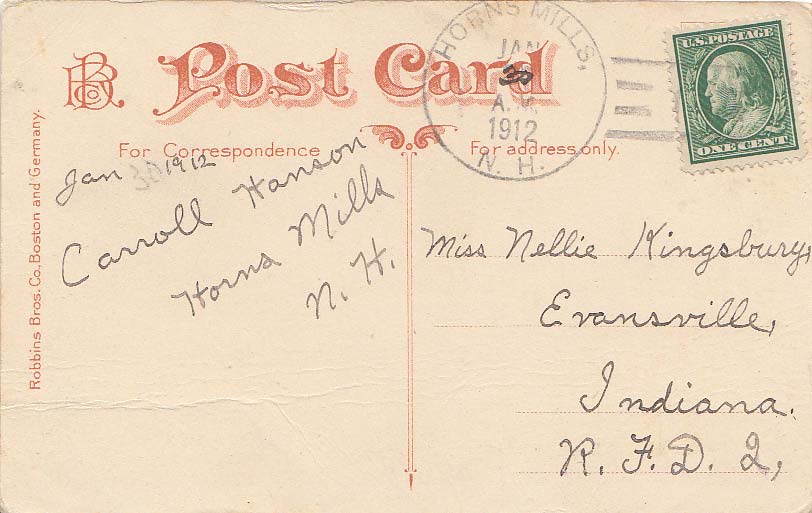 RBCo.
Post Card
For Correspondence
For address only.
Robbins Bros. Co., Boston and Germany.
HORNS MILLS,
JAN
30
A.M.
1912
N. H.
U.S. POSTAGE
ONE CENT
Jan 30 1912
Carroll Hanson
Horns Mills
N. H.
Miss Nellie Kingsbury,
Evansville,
Indiana.
R. F. D. 2,